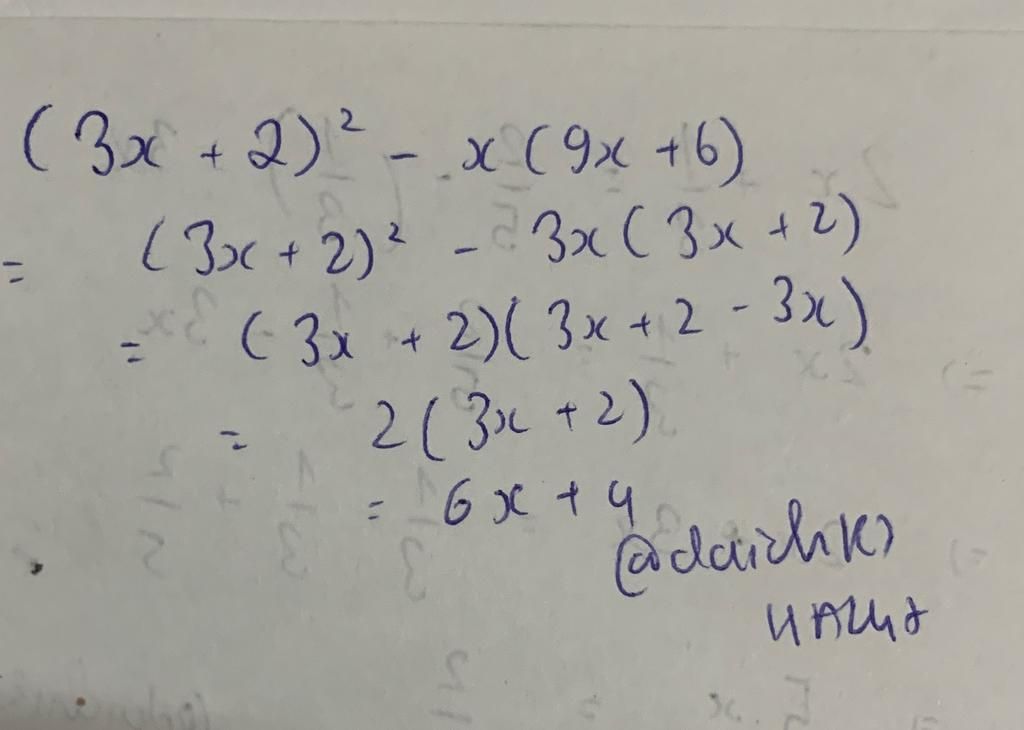 (3x + 2)² - x(9x + 6)
= (3x + 2)² - 3x(3x + 2)
= (3x + 2)(3x + 2 - 3x)
= 2(3x + 2)
= 6x + 4